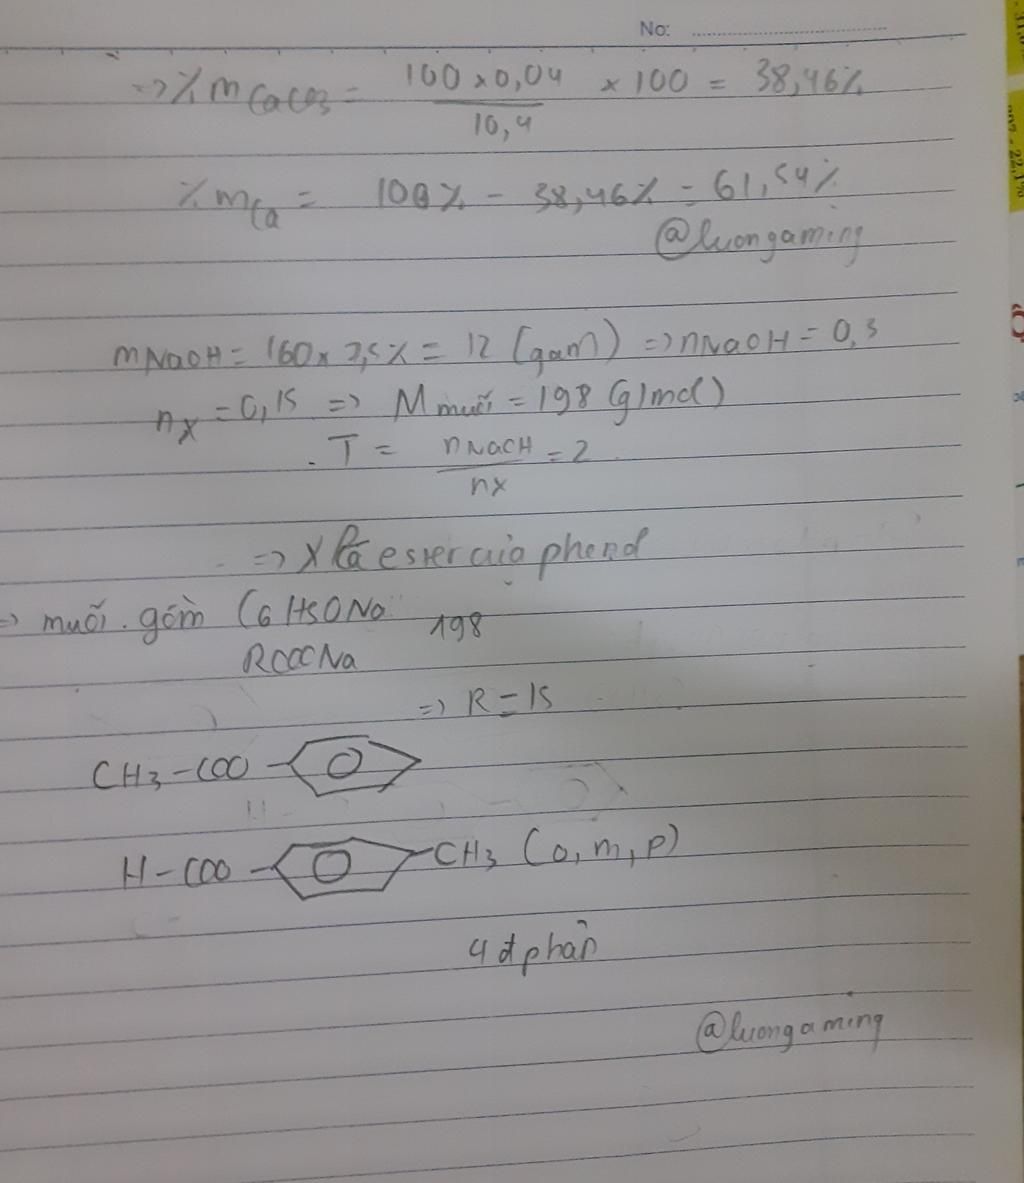 No:
=> % m CaCO3 = 100 x 0,04 / 10,4 x 100 = 38,46%
% m Ca = 100% - 38,46% = 61,54%
@luongaming
mNaOH = 160 x 7,5% = 12 (gam) => nNaOH = 0,3
nX = 0,15 => M muối = 198 (g/mol)
T = nNaOH / nX = 2
=> X là ester của phenol
=> muối gồm C6H5ONa
198
RCOONa
=> R = 15
CH3-COO-
H-COO- -CH3 (o, m, p)
4 đ phân
@luongaming